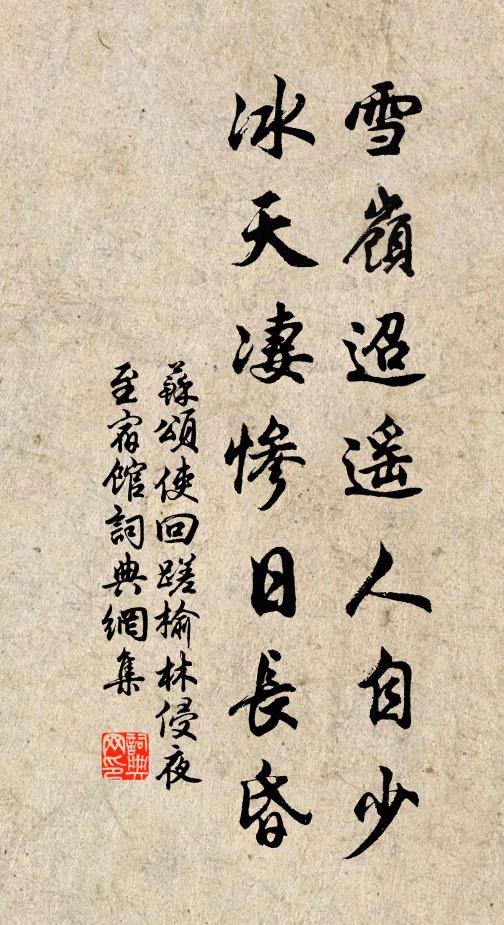 雪嶺迢遥人自少
冰天凄慘日長昏
蘇頌使回蹉榆林侵夜
至宿館詞典網集
詞典网印